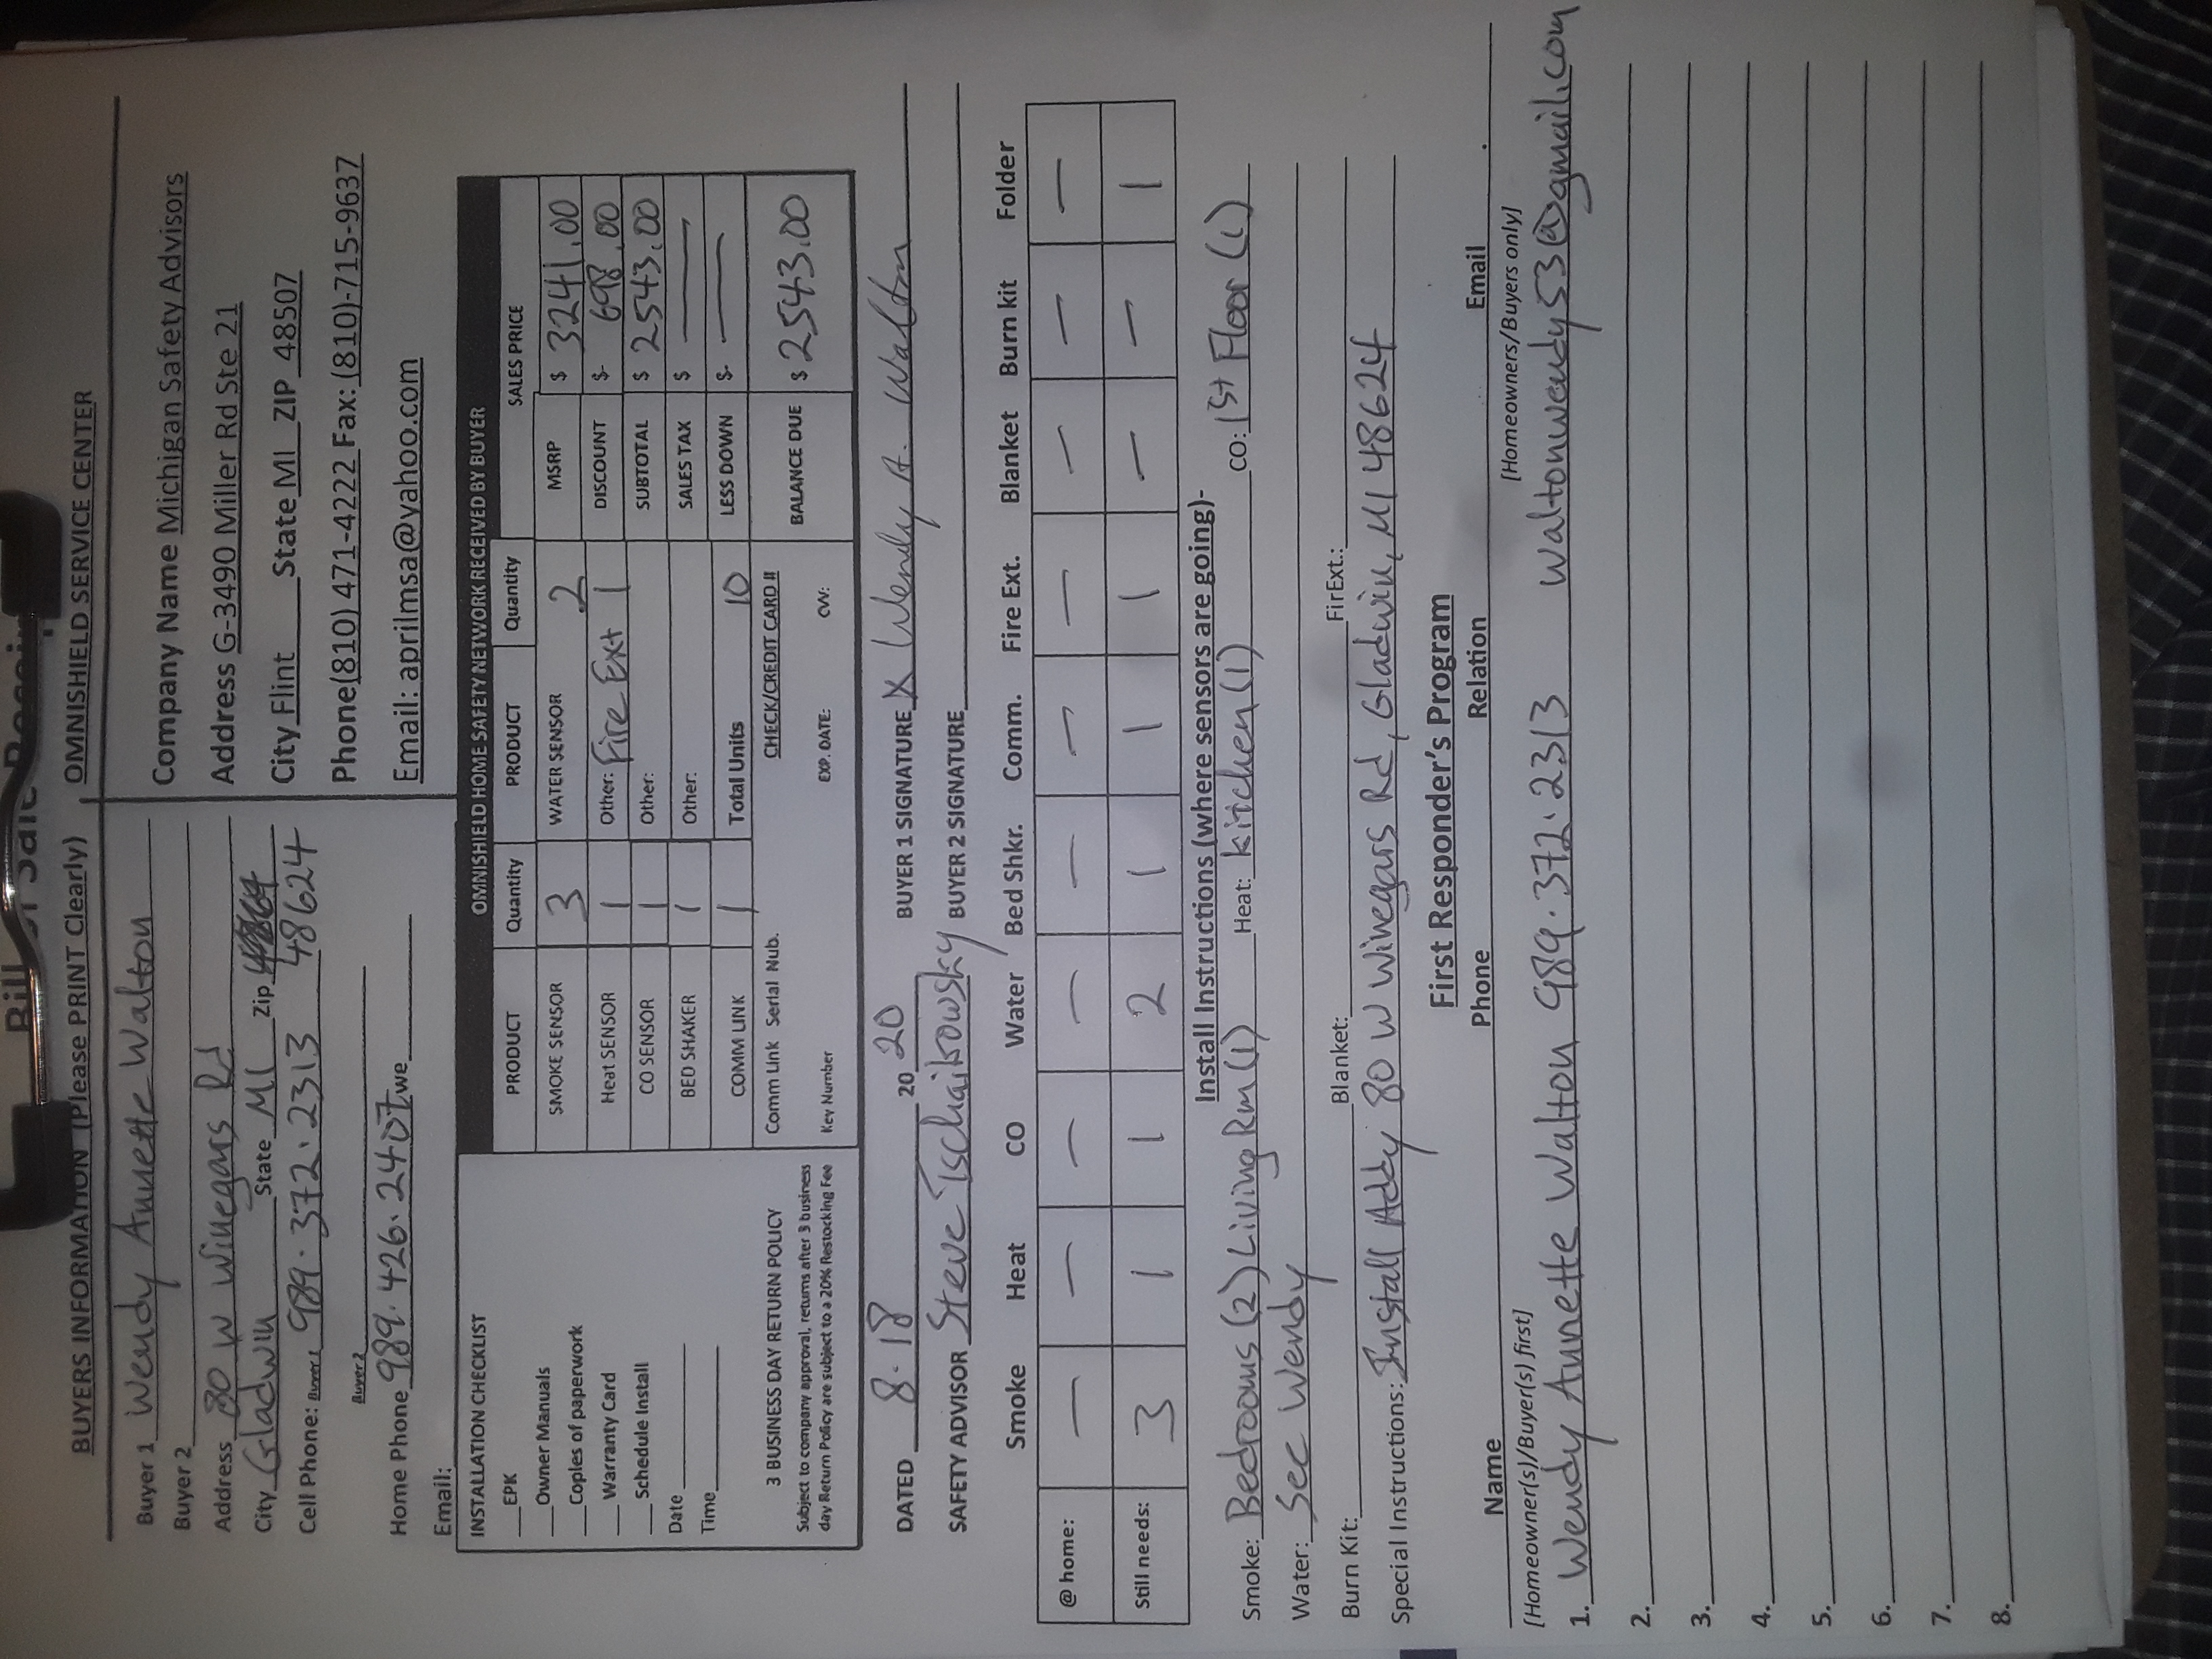 Bill of Sale Receip
BUYERS INFORMATION (Please PRINT Clearly)
Buyer 1 Wendy Annette Walton
Buyer 2
Address 80 W Winegars Rd
City Gladwin State MI Zip 48624
Cell Phone: Buyer 1 989.372.2313
Buyer 2
Home Phone 989.426.2407 we
Email:
OMNISHIELD SERVICE CENTER
Company Name Michigan Safety Advisors
Address G-3490 Miller Rd Ste 21
City Flint State MI ZIP 48507
Phone(810) 471-4222 Fax: (810)-715-9637
Email: aprilmsa@yahoo.com
INSTALLATION CHECKLIST
EPK
Owner Manuals
Copies of paperwork
Warranty Card
Schedule Install
Date
Time
3 BUSINESS DAY RETURN POLICY
Subject to company approval, returns after 3 business
day Return Policy are subject to a 20% Restocking Fee
OMNISHIELD HOME SAFETY NETWORK RECEIVED BY BUYER
PRODUCT Quantity PRODUCT Quantity SALES PRICE
SMOKE SENSOR 3 WATER SENSOR 2 MSRP $ 3241.00
Heat SENSOR 1 Other: Fire Ext 1 DISCOUNT $- 698.00
CO SENSOR 1 Other: SUBTOTAL $ 2543.00
BED SHAKER 1 Other: SALES TAX $ —
COMM LINK 1 Total Units 10 LESS DOWN $- —
Comm Link Serial Nub. CHECK/CREDIT CARD # BALANCE DUE $ 2543.00
Key Number EXP. DATE: CVV:
DATED 8.18 20 20 BUYER 1 SIGNATURE X Wendy A. Walton
SAFETY ADVISOR Steve Tschaikowsky BUYER 2 SIGNATURE
Smoke Heat CO Water Bed Shkr. Comm. Fire Ext. Blanket Burn kit Folder
@ home: — — — — — — — — — —
Still needs: 3 1 1 2 1 1 1 — — 1
Install Instructions (where sensors are going)-
Smoke: Bedrooms (2) Living Rm (1) Heat: Kitchen (1) CO: 1st Floor (1)
Water: See Wendy
Burn Kit: Blanket: FirExt.:
Special Instructions: Install Addy 80 W Winegars Rd, Gladwin, MI 48624
First Responder's Program
Name Phone Relation Email
[Homeowner(s)/Buyer(s) first] [Homeowners/Buyers only]
1. Wendy Annette Walton 989.372.2313 waltonwendy53@gmail.com
2.
3.
4.
5.
6.
7.
8.